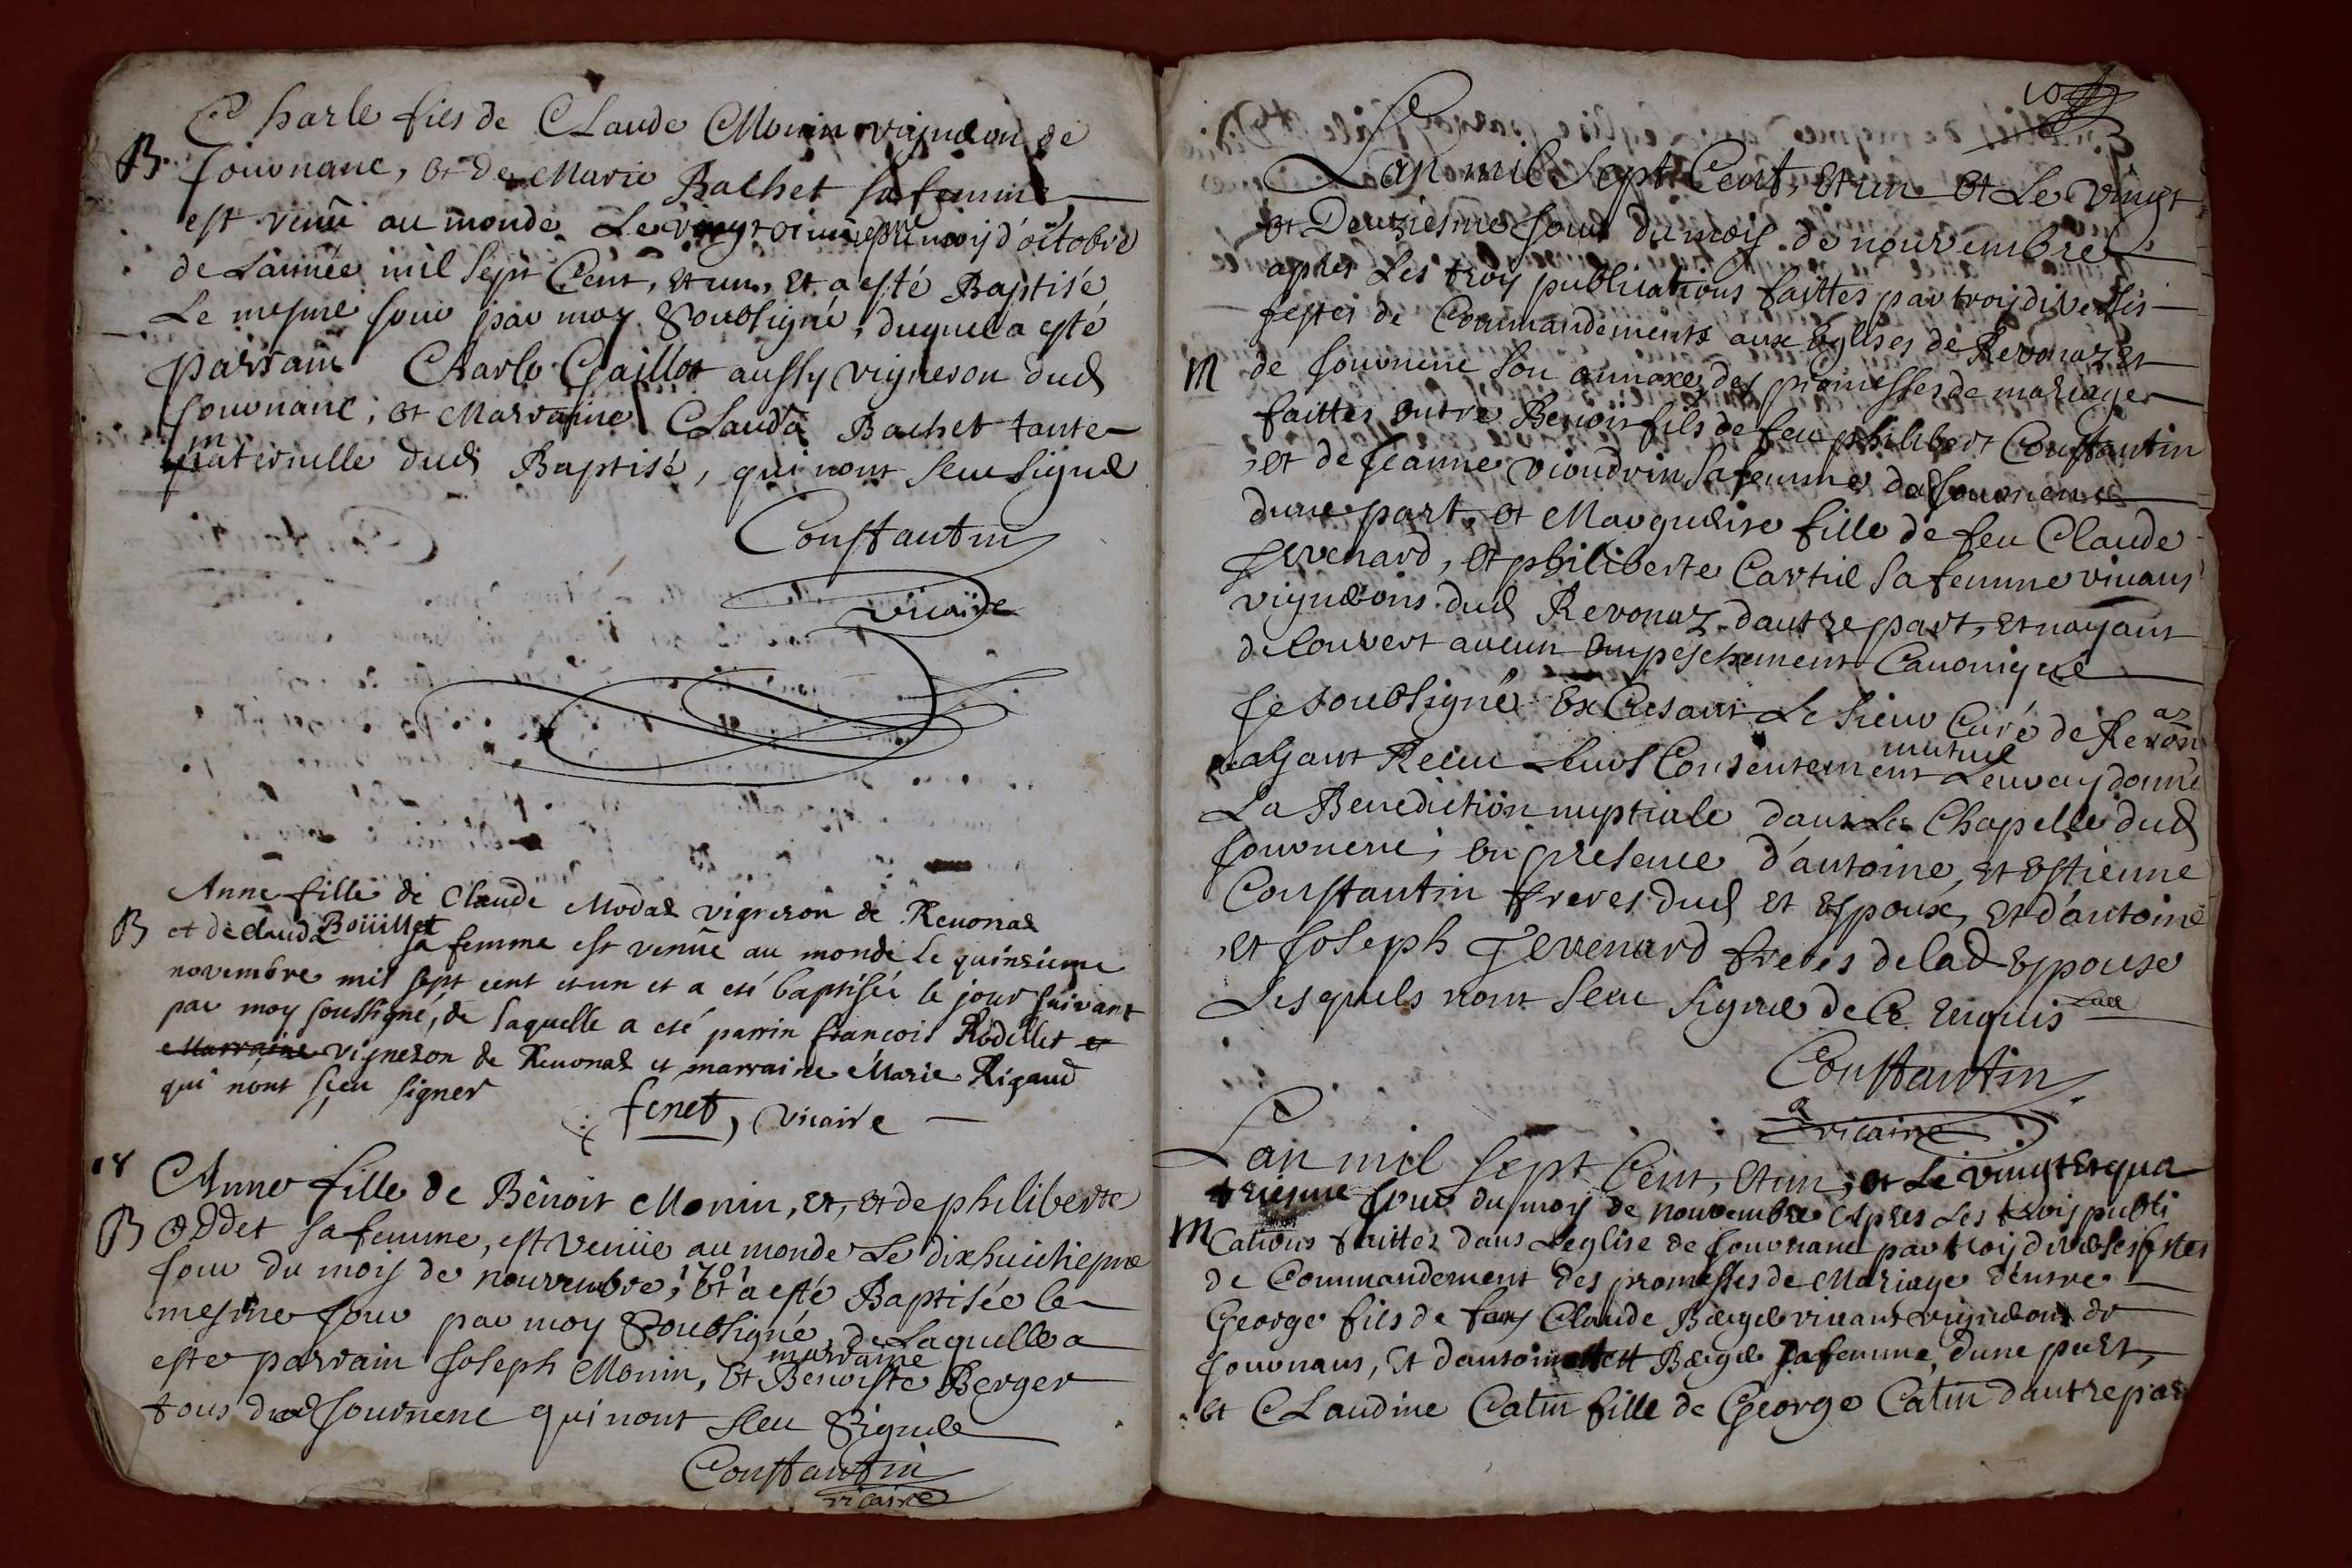 Charle fils de Claude Monin vigneron de
B. Jouvnanc, et de Marie Bachet sa femme
est venu au monde Le du mois d'octobre
de L'année mil sept Cent, et un, et a esté Baptisé
Le mesme Jour par moy Soubsigné, duquel a esté
parrain Charle Gaillot aussy vigneron dud
Jouvnanc, et Marraine Clauda Bachet tante
maternelle dud Baptisé, qui nont sceu signer
Constantin
vicaire
Anne fille de Claude Modas vigneron de Reuonas
B et de Clauda Boüillet sa femme est venüe au monde le quinzieme
novembre mil sept cent et un et a eté baptisée le jour suivant
par moy soussigné, de laquelle a eté parrin francois Rodellet et
Marraine vigneron de Reuonas et marraine Marie Rigaud
qui n'ont sçeu signer
fenet, vicaire
18 Anne fille de Benoit Monin, et, et de philiberte
B Oddet sa femme, est venüe au monde Le dixhuictiesme
Jour du mois de nouvembre, 1701 et a esté Baptisée le
mesme Jour par moy Soubsigné, de Laquelle a
esté parrain Joseph Monin, et marraine Benoiste Berger
tous dud Jouvnenc qui nont sceu Signer
Constantin
vicaire
10
Lan mil sept Cent, et un et Le vingt
et Deuziesme Jour du mois de nouvembre
apres Les trois publications faittes par trois diverses
festes de Commandements aux Eglises de Revonaz et
M de Jouvnenc son annexe, des promesses de mariage
faittes entre Benoit fils de feu philibert Constantin
, et de Jeanne vioudrin sa femme de Jouvnenc
dune part, et Marguerite fille de feu Claude
Jevenard, et philiberte Cartiel sa femme vivans
vignerons dud Revonaz dautre part, et nayant
decouvert aucun Empeschement Canonique
Je soubsigné Excusant Le sieur Curé de Revonaz
ayant Receu Leurs Consentement mutuel Leur ay donné
La Benediction nuptiale dans La Chapelle dud
Jouvnenc, en presence d'antoine, et Estienne
Constantin freres dud et Espoux, et d'antoine
, et Joseph Jevenard freres de lad Espouse
Lesquels nont sceu signer de Ce enquis
Constantin
vicaire
Lan mil sept Cent, et un, et Le vingt et qua
triesme Jour du mois de nouvembre apres Les trois publi
M Cations faittes dans Leglise de Jouvnanc par trois diverses festes
de Commandement des promesses de Mariage d'entre
George fils de feu Claude Bergel vivant vigneron de
Jouvnans, et dantoinette Bergel sa femme, dune part,
et Claudine Catin fille de George Catin dautre part